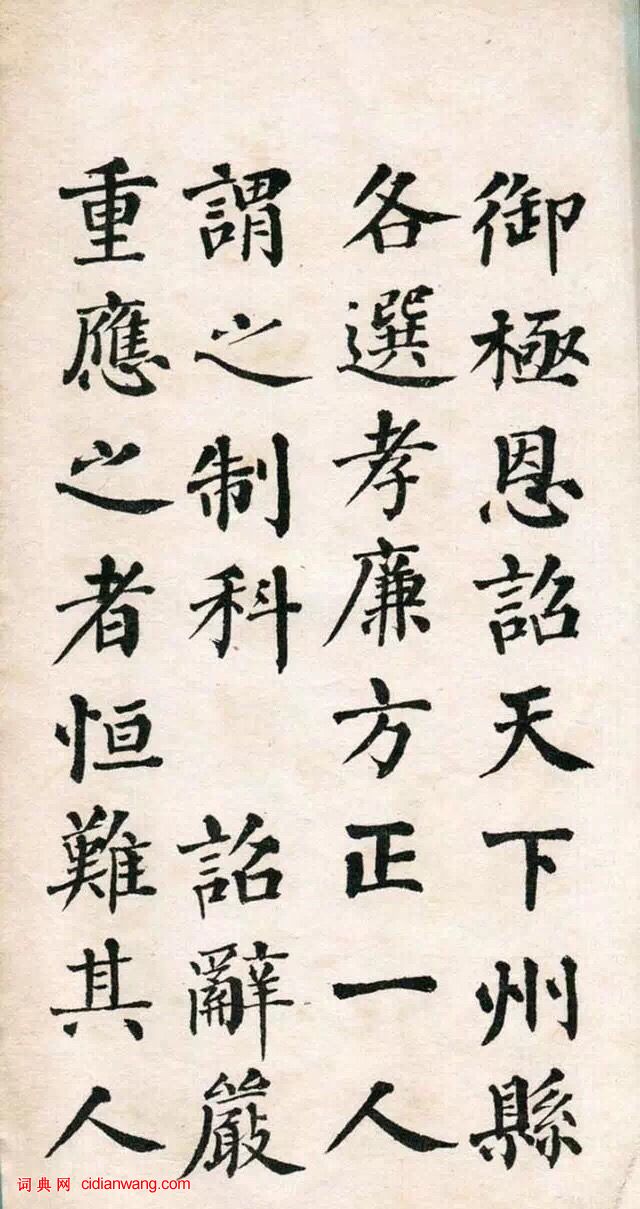 御極恩詔天下州縣
各選孝廉方正一人
謂之制科 詔辭嚴
重應之者恒難其人
词典网 cidianwang.com